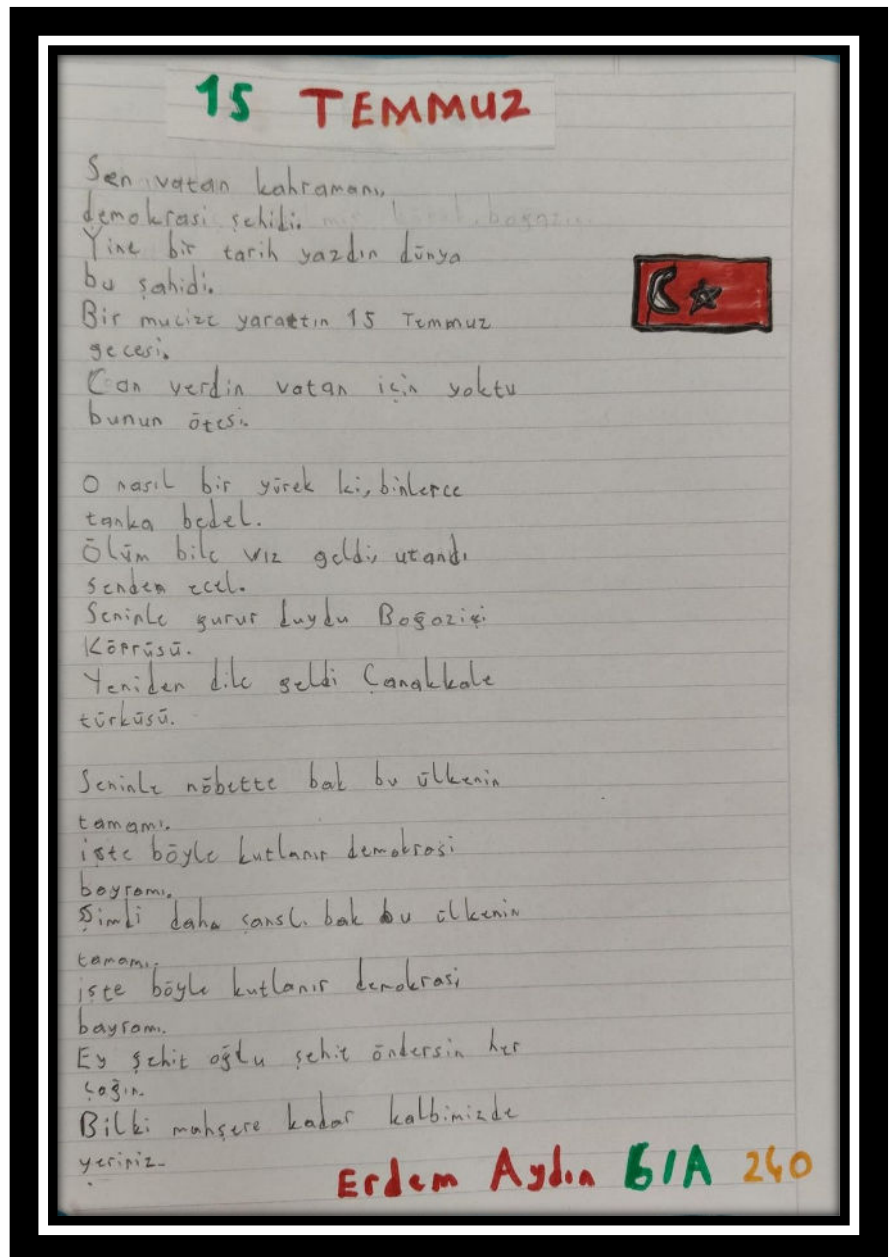 15 TEMMUZ
Sen vatan kahramanı,
demokrasi şehidi.
Yine bir tarih yazdın dünya
bu şahidi.
Bir mucize yarattın 15 Temmuz
gecesi.
Can verdin vatan için yoktu
bunun ötesi.
O nasıl bir yürek ki, binlerce
tanka bedel.
Ölüm bile vız geldi, utandı
senden ecel.
Seninle gurur duydu Boğaziçi
Köprüsü.
Yeniden dile geldi Çanakkale
türküsü.
Seninle nöbette bak bu ülkenin
tamamı.
işte böyle kutlanır demokrasi
bayramı.
Şimdi daha şanslı bak bu ülkenin
tamamı.
işte böyle kutlanır demokrasi
bayramı.
Ey şehit oğlu şehit öndersin her
çağın.
Bilki mahşere kadar kalbimizde
yeriniz.
Erdem Aydın 6/A 240